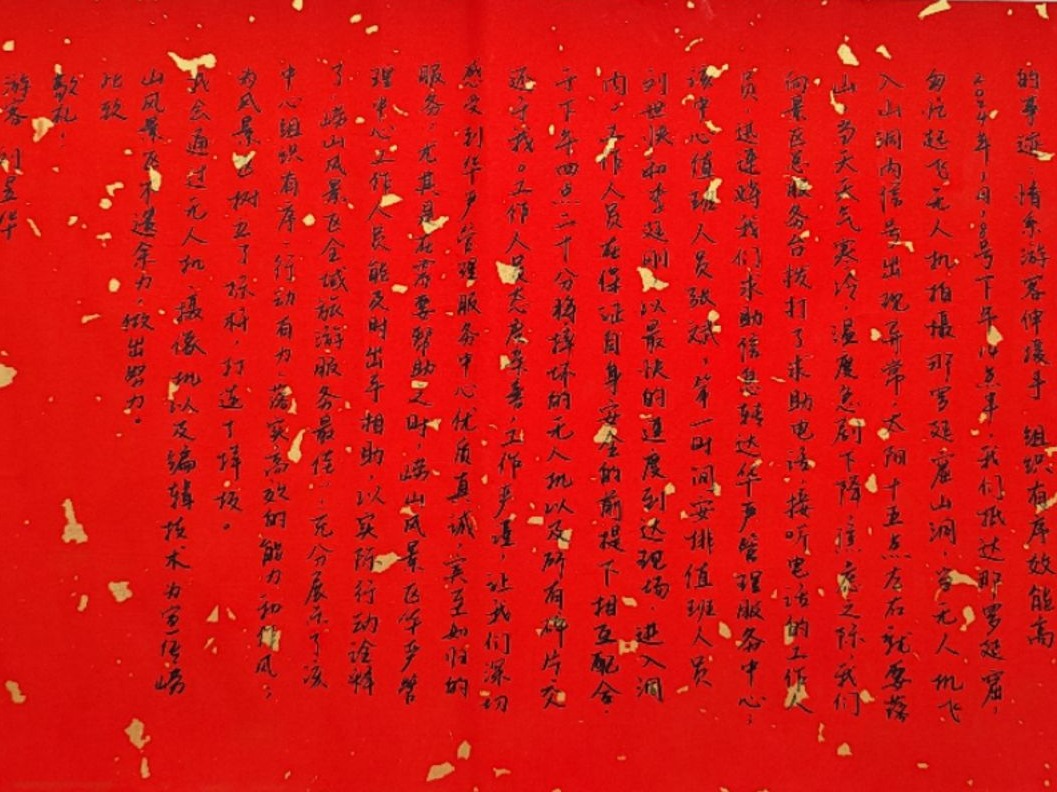 的事迹：情系游客伸援手 组织有序效能高
2024年1月18号下午14点半，我们抵达那罗延窟，
匆忙起飞无人机拍摄那罗延窟山洞，当无人机飞
入山洞内信号出现异常，太阳十五点左右就要落
山，当天天气寒冷，温度急剧下降，焦虑之际我们
向景区总服务台拨打了求助电话，接听电话的工作人
员，迅速将我们求助信息转达华严管理服务中心，
该中心值班人员张斌，第一时间安排值班人员
刘世快和李延刚，以最快的速度到达现场，进入洞
内。工作人员在保证自身安全的前提下相互配合，
于下午四点二十分将摔坏的无人机以及所有碎片交
还于我。工作人员态度亲善，工作严谨，让我们深切
感受到华严管理服务中心优质真诚、宾至如归的
服务，尤其是在需要帮助之时，崂山风景区华严管
理中心工作人员能及时出手相助，以实际行动诠释
了，崂山风景区全域旅游服务最佳，，充分展示了该
中心组织有序，行动有力，落实高效的能力和作风，，
为风景区树立了标杆，打造了样板。
我会通过无人机、摄像机以及编辑技术为宣传崂
山风景区不遗余力，做出努力。
此致
敬礼！
游客 刘显华